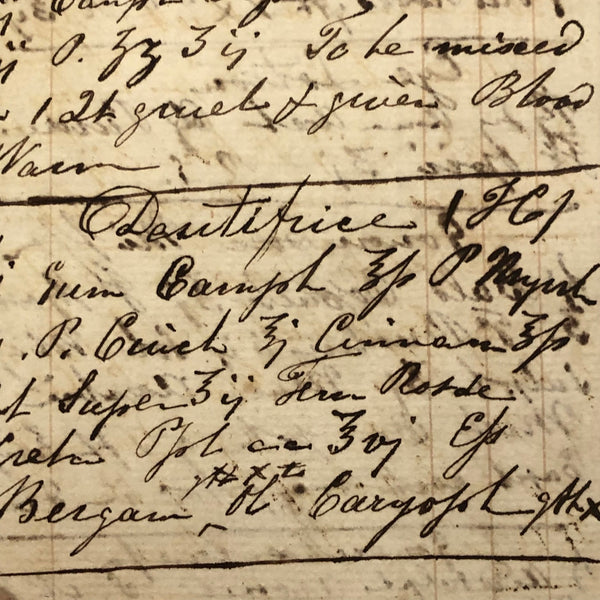 P. ʒʒ ʒij To be mixed
1 Qt gruel & given Blood
Warm
Dentifrice (HC)
Gum Camph ℥ß P Myrrh
P. Cinch ℥j Cinnam ℥ß
Super ʒij Ferr
Creta Ppt aa ℥vj Ess
gtt x
Bergam, Ol Caryoph gtt x